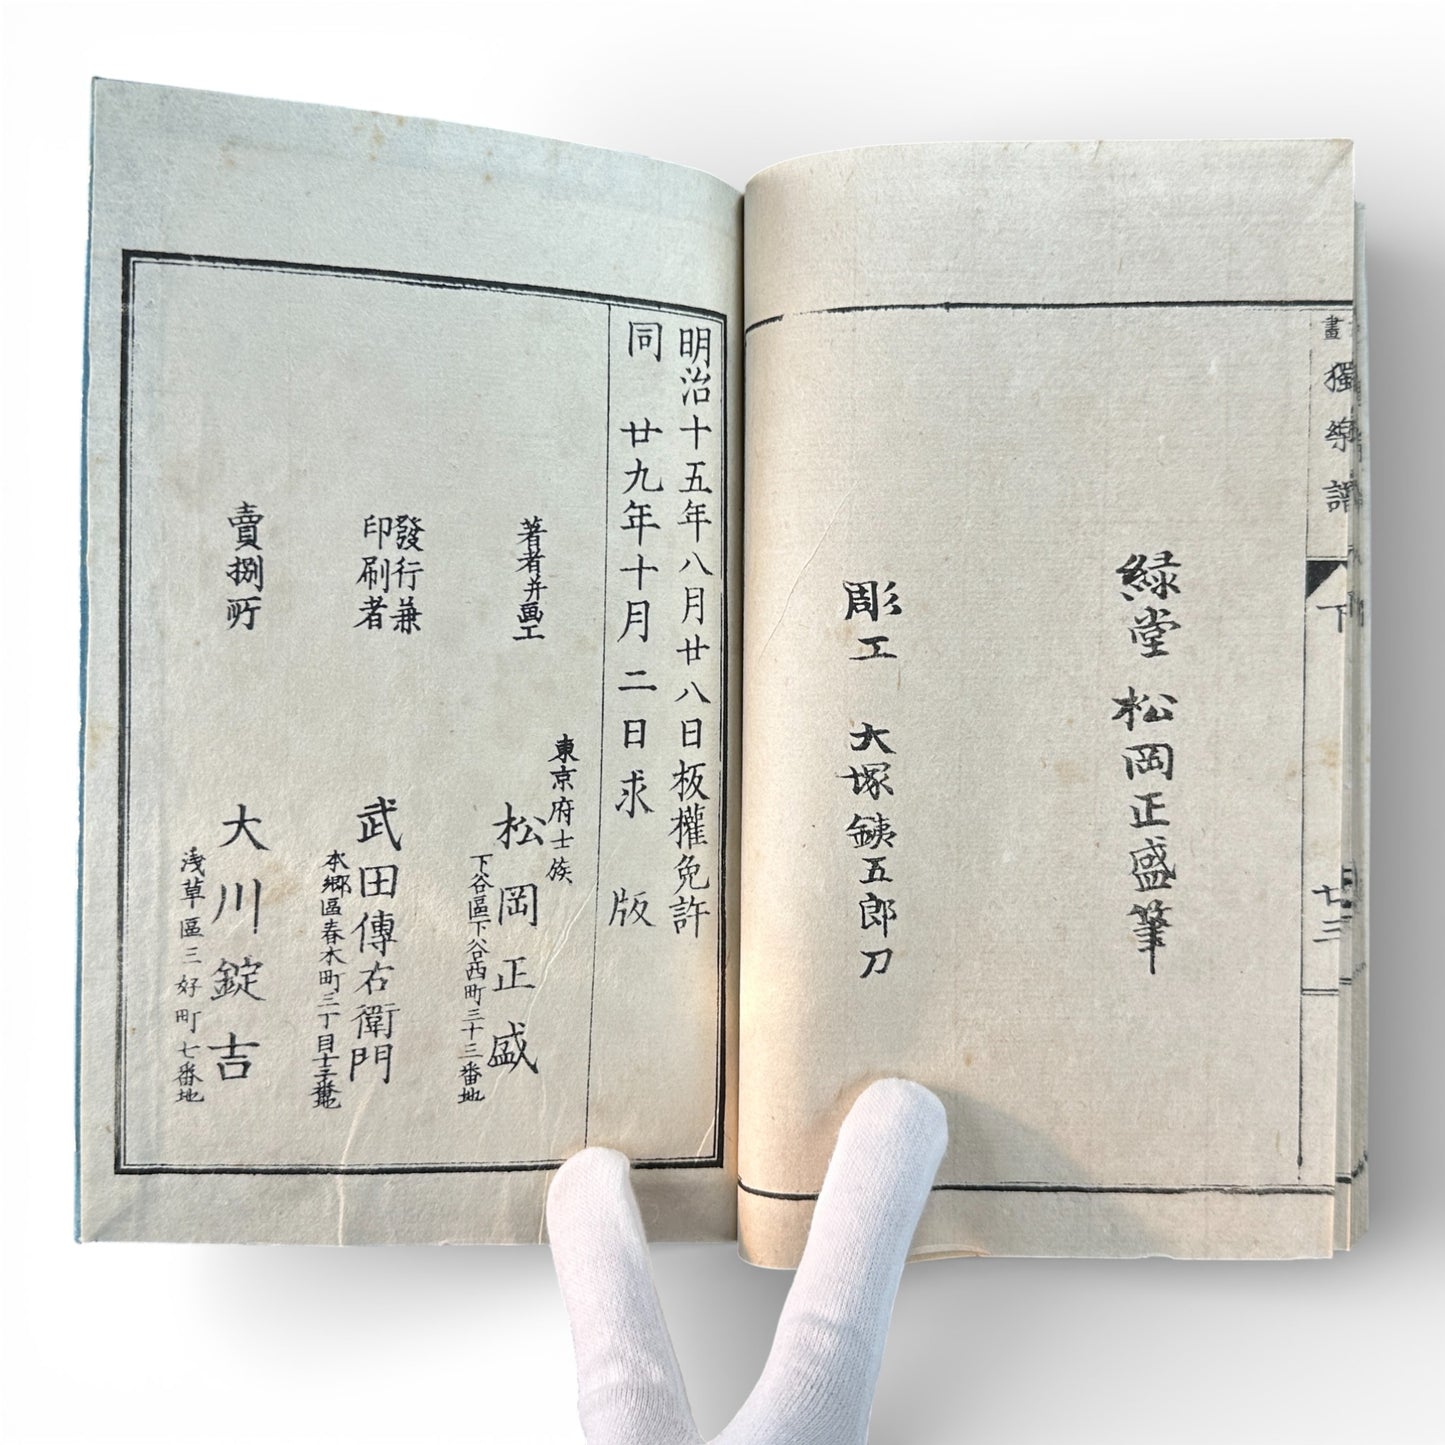 緑堂 松岡正盛筆
彫工 大塚銕五郎刀
畫
獨樂譜
下
廿三
明治十五年八月廿八日板權免許
同 廿九年十月二日求版
著者并画工
東京府士族
松岡正盛
下谷區下谷西町三十三番地
發行兼
印刷者
武田傳右衛門
本郷區春木町三丁目十三番地
賣捌所
大川錠吉
浅草區三好町七番地